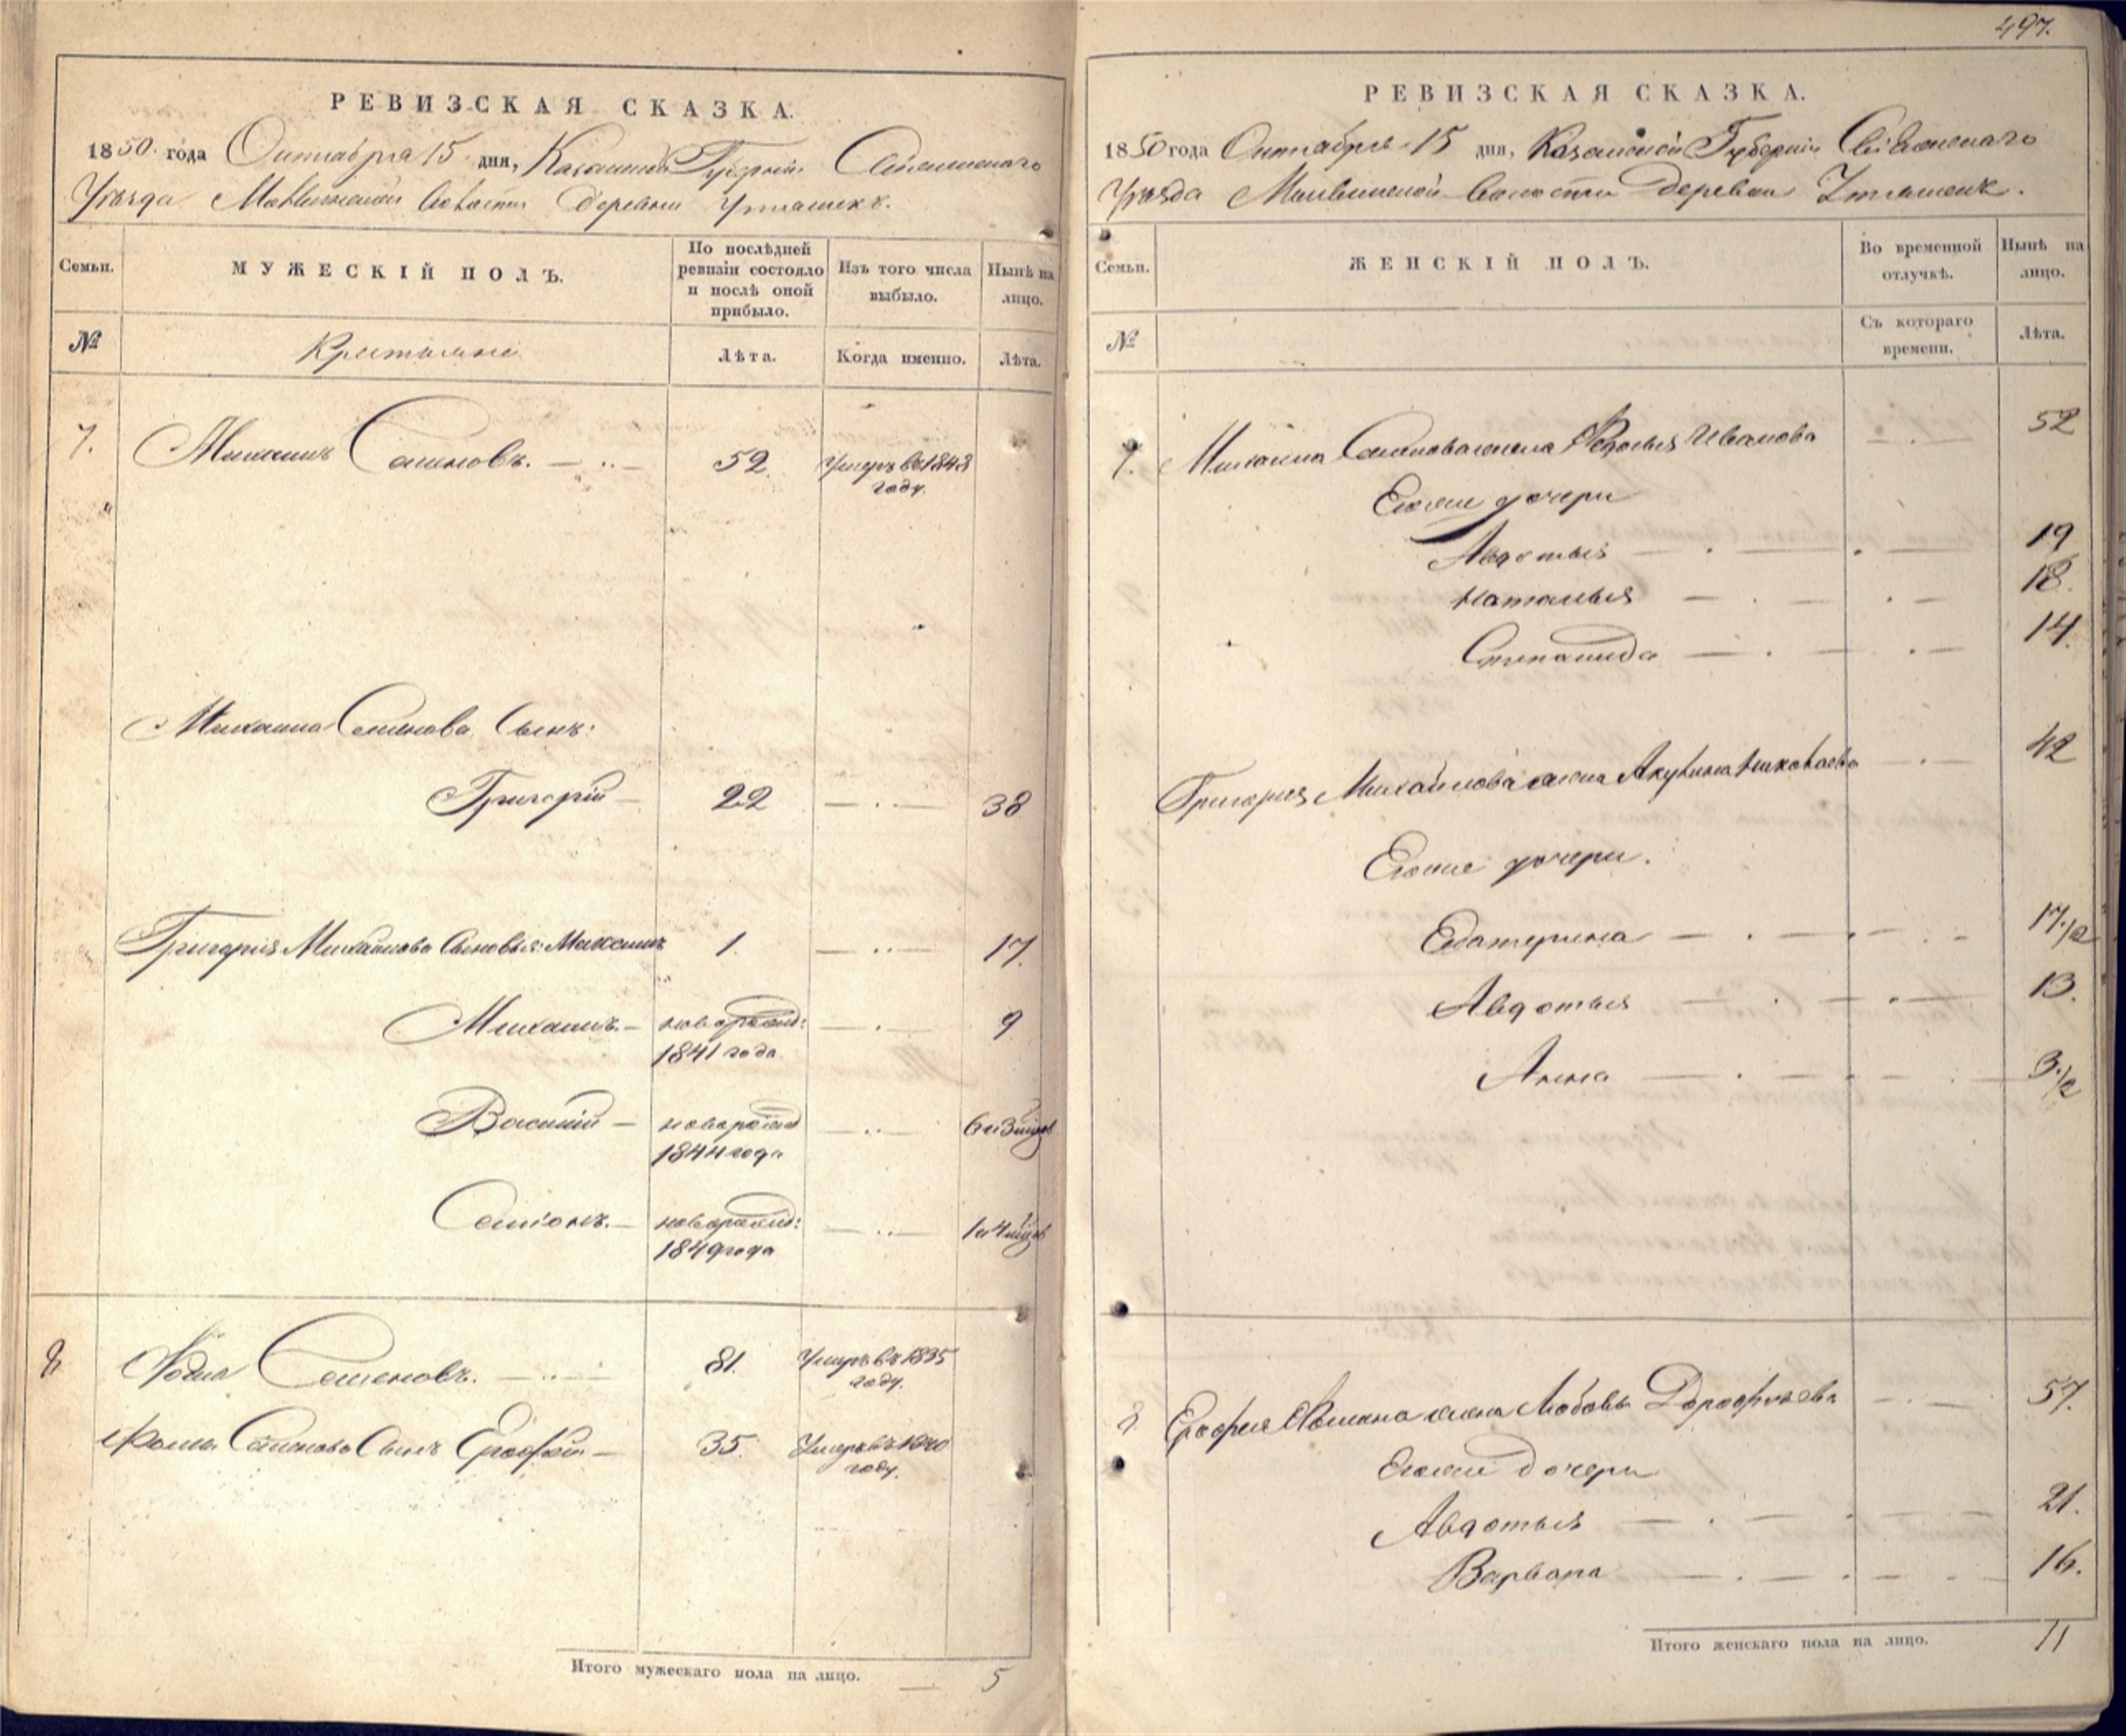 497.
РЕВИЗСКАЯ СКАЗКА.
1850 года Октября 15 дня, Казанской Губернии Свіяжскаго
Уѣзда Маквинской Волости Деревни Утяшекъ.
Семьи.
МУЖЕСКІЙ ПОЛЪ.
По послѣдней ревизіи состояло и послѣ оной прибыло.
Изъ того числа выбыло.
Нынѣ на лицо.
№
Крестьяне
Лѣта.
Когда именно.
Лѣта.
7. Михаилъ Семеновъ. 52. Умеръ въ 1843
году.
Михаила Семенова Сынъ:
Григорій 22 38
Григорія Михайлова Сыновья: Максимъ 1. 17.
Михаилъ новорожд: 9
1841 года
Василій новорожд 6 и 3 мцов
1844 года
Семіонъ. новорожд: 1 и 4 мцов
1849 года
8 Фома Семеновъ. 81. Умеръ въ 1835
году.
Фомы Семенова Сынъ Ерофей 35. Умеръ въ 1840
году.
Итого мужескаго пола на лицо. 5
РЕВИЗСКАЯ СКАЗКА.
1850 года Октября 15 дня, Казанской Губерніи Свіяжскаго
Уѣзда Маквинской Волости Деревни Утяшекъ.
Семьи.
ЖЕНСКІЙ ПОЛЪ.
Во временной отлучкѣ.
Нынѣ на лицо.
№
Съ котораго времени.
Лѣта.
7. Михаила Семенова жена Федосья Иванова 52
Егоже дочери
Авдотья 19
Наталья 18.
Степанида 14.
Григорія Михайлова жена Акулина Николаева 42
Егоже дочери.
Екатерина 17 1/2
Авдотья 13.
Анна 3 1/2
8 Ерофея Фомина жена Любовь Дорофѣева 57.
Егоже Дочери
Авдотья 21.
Варвара 16.
Итого женскаго пола на лицо. 11